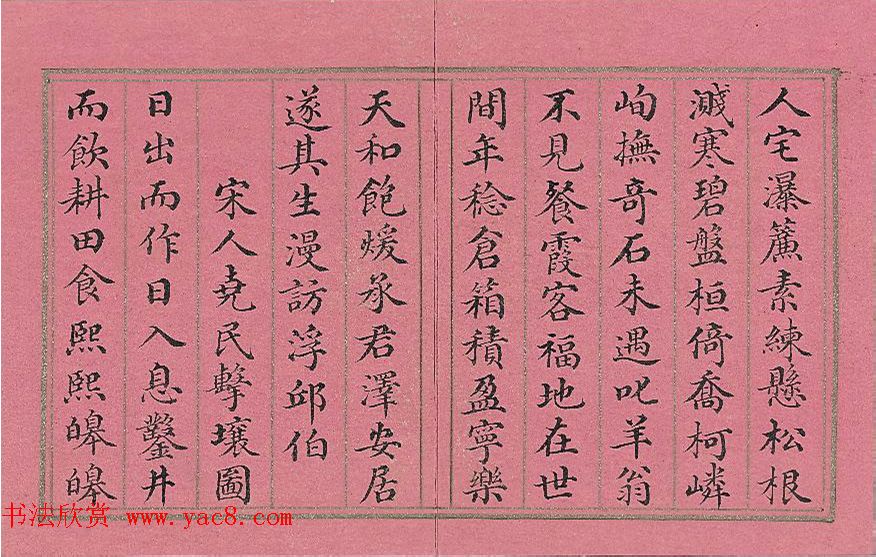 人宅瀑簾素練懸松根
濺寒碧盤桓倚喬柯嶙
峋撫奇石未遇叱羊翁
不見餐霞客福地在世
間年稔倉箱積盈寧樂
天和飽煖承君澤安居
遂其生漫訪浮邱伯
宋人堯民擊壤圖
日出而作日入息鑿井
而飲耕田食熙熙皞皞
书法欣赏 www.yac8.com